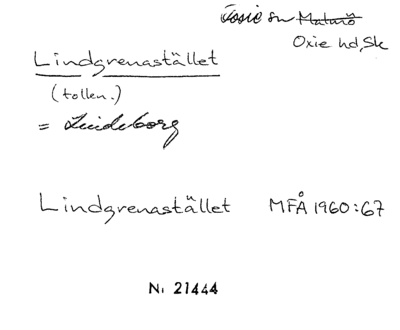 sn Malmö
Oxie hd, Sk
Lindgrenastället
(tollen.)
= Lindeborg
Lindgrenastället MFÅ 1960:67
Nr 21444